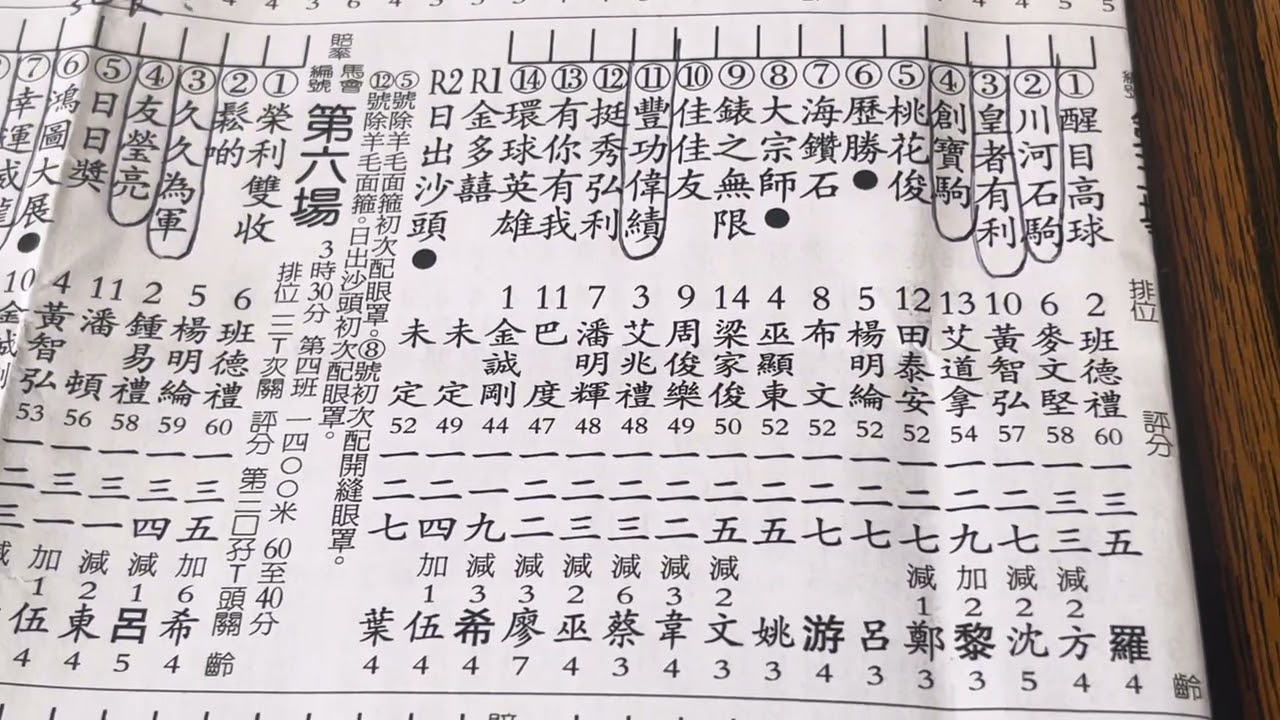 編號 排位 評分 齡
① 醒目高球 2 班德禮 60 一三五 羅 4
② 川河石駒 6 麥文堅 58 一三三 減2 方 4
③ 皇者有利 10 黃智弘 57 一二七 減2 沈 5
④ 創寶駒 13 艾道拿 54 一二九 加2 黎 3
⑤ 桃花俊 12 田泰安 52 一二七 減1 鄭 3
⑥ 歷勝● 5 楊明綸 52 一二七 呂 3
⑦ 海鑽石 8 布文 52 一二七 游 4
⑧ 大宗師● 4 巫顯東 52 一二五 姚 3
⑨ 錶之無限 14 梁家俊 50 一二五 減2 文 3
⑩ 佳佳友 9 周俊樂 49 一二二 減3 韋 4
⑪ 豐功偉績 3 艾兆禮 48 一二三 減6 蔡 3
⑫ 挺秀弘利 7 潘明輝 48 一二三 減2 巫 4
⑬ 有你有我 11 巴度 47 一二二 減3 廖 7
⑭ 環球英雄 1 金誠剛 44 一一九 減3 希 4
R1 金多囍 未定 49 一二四 加1 伍 4
R2 日出沙頭● 未定 52 一二七 葉 4
⑤號除羊毛面箍初次配眼罩。⑧號初次配開縫眼罩。
⑫號除羊毛面箍。日出沙頭初次配眼罩。
賠率
馬會編號
第六場
3時30分 第四班 一四〇〇米 60至40分
排位 二T次關 評分 第三口孖T頭關 齡
① 榮利雙收 6 班德禮 60 一三五 加6 希 4
② 鬆啲 5 楊明綸 59 一三四 減1 呂 5
③ 久久為軍 2 鍾易禮 58 一三一 減2 東 4
④ 友瑩亮 11 潘頓 56 一三一 加1 伍 4
⑤ 日日獎 4 黃智弘 53 一二三
⑥ 鴻圖大展● 10
⑦ 幸運威龍